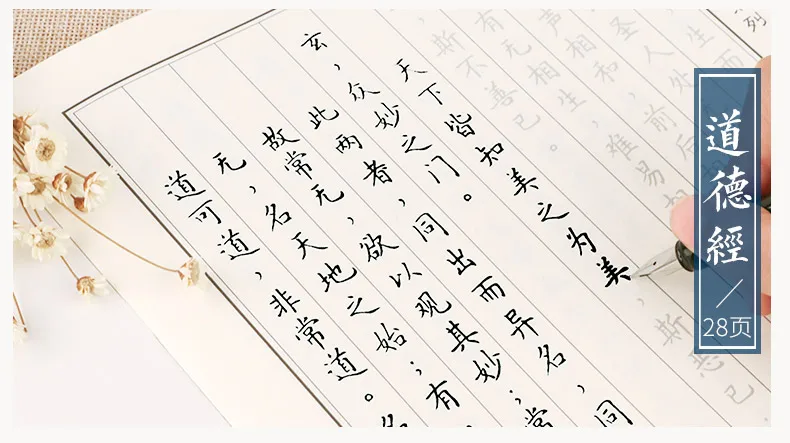 道可道，非常道。名
无，名天地之始；有
故常无，欲以观其妙；常
此两者，同出而异名，同
玄，众妙之门。
天下皆知美之为美，斯恶已
斯不善已。
有无相生，难易相
声相和，前后相
圣人处
生而
列
道德經
28页